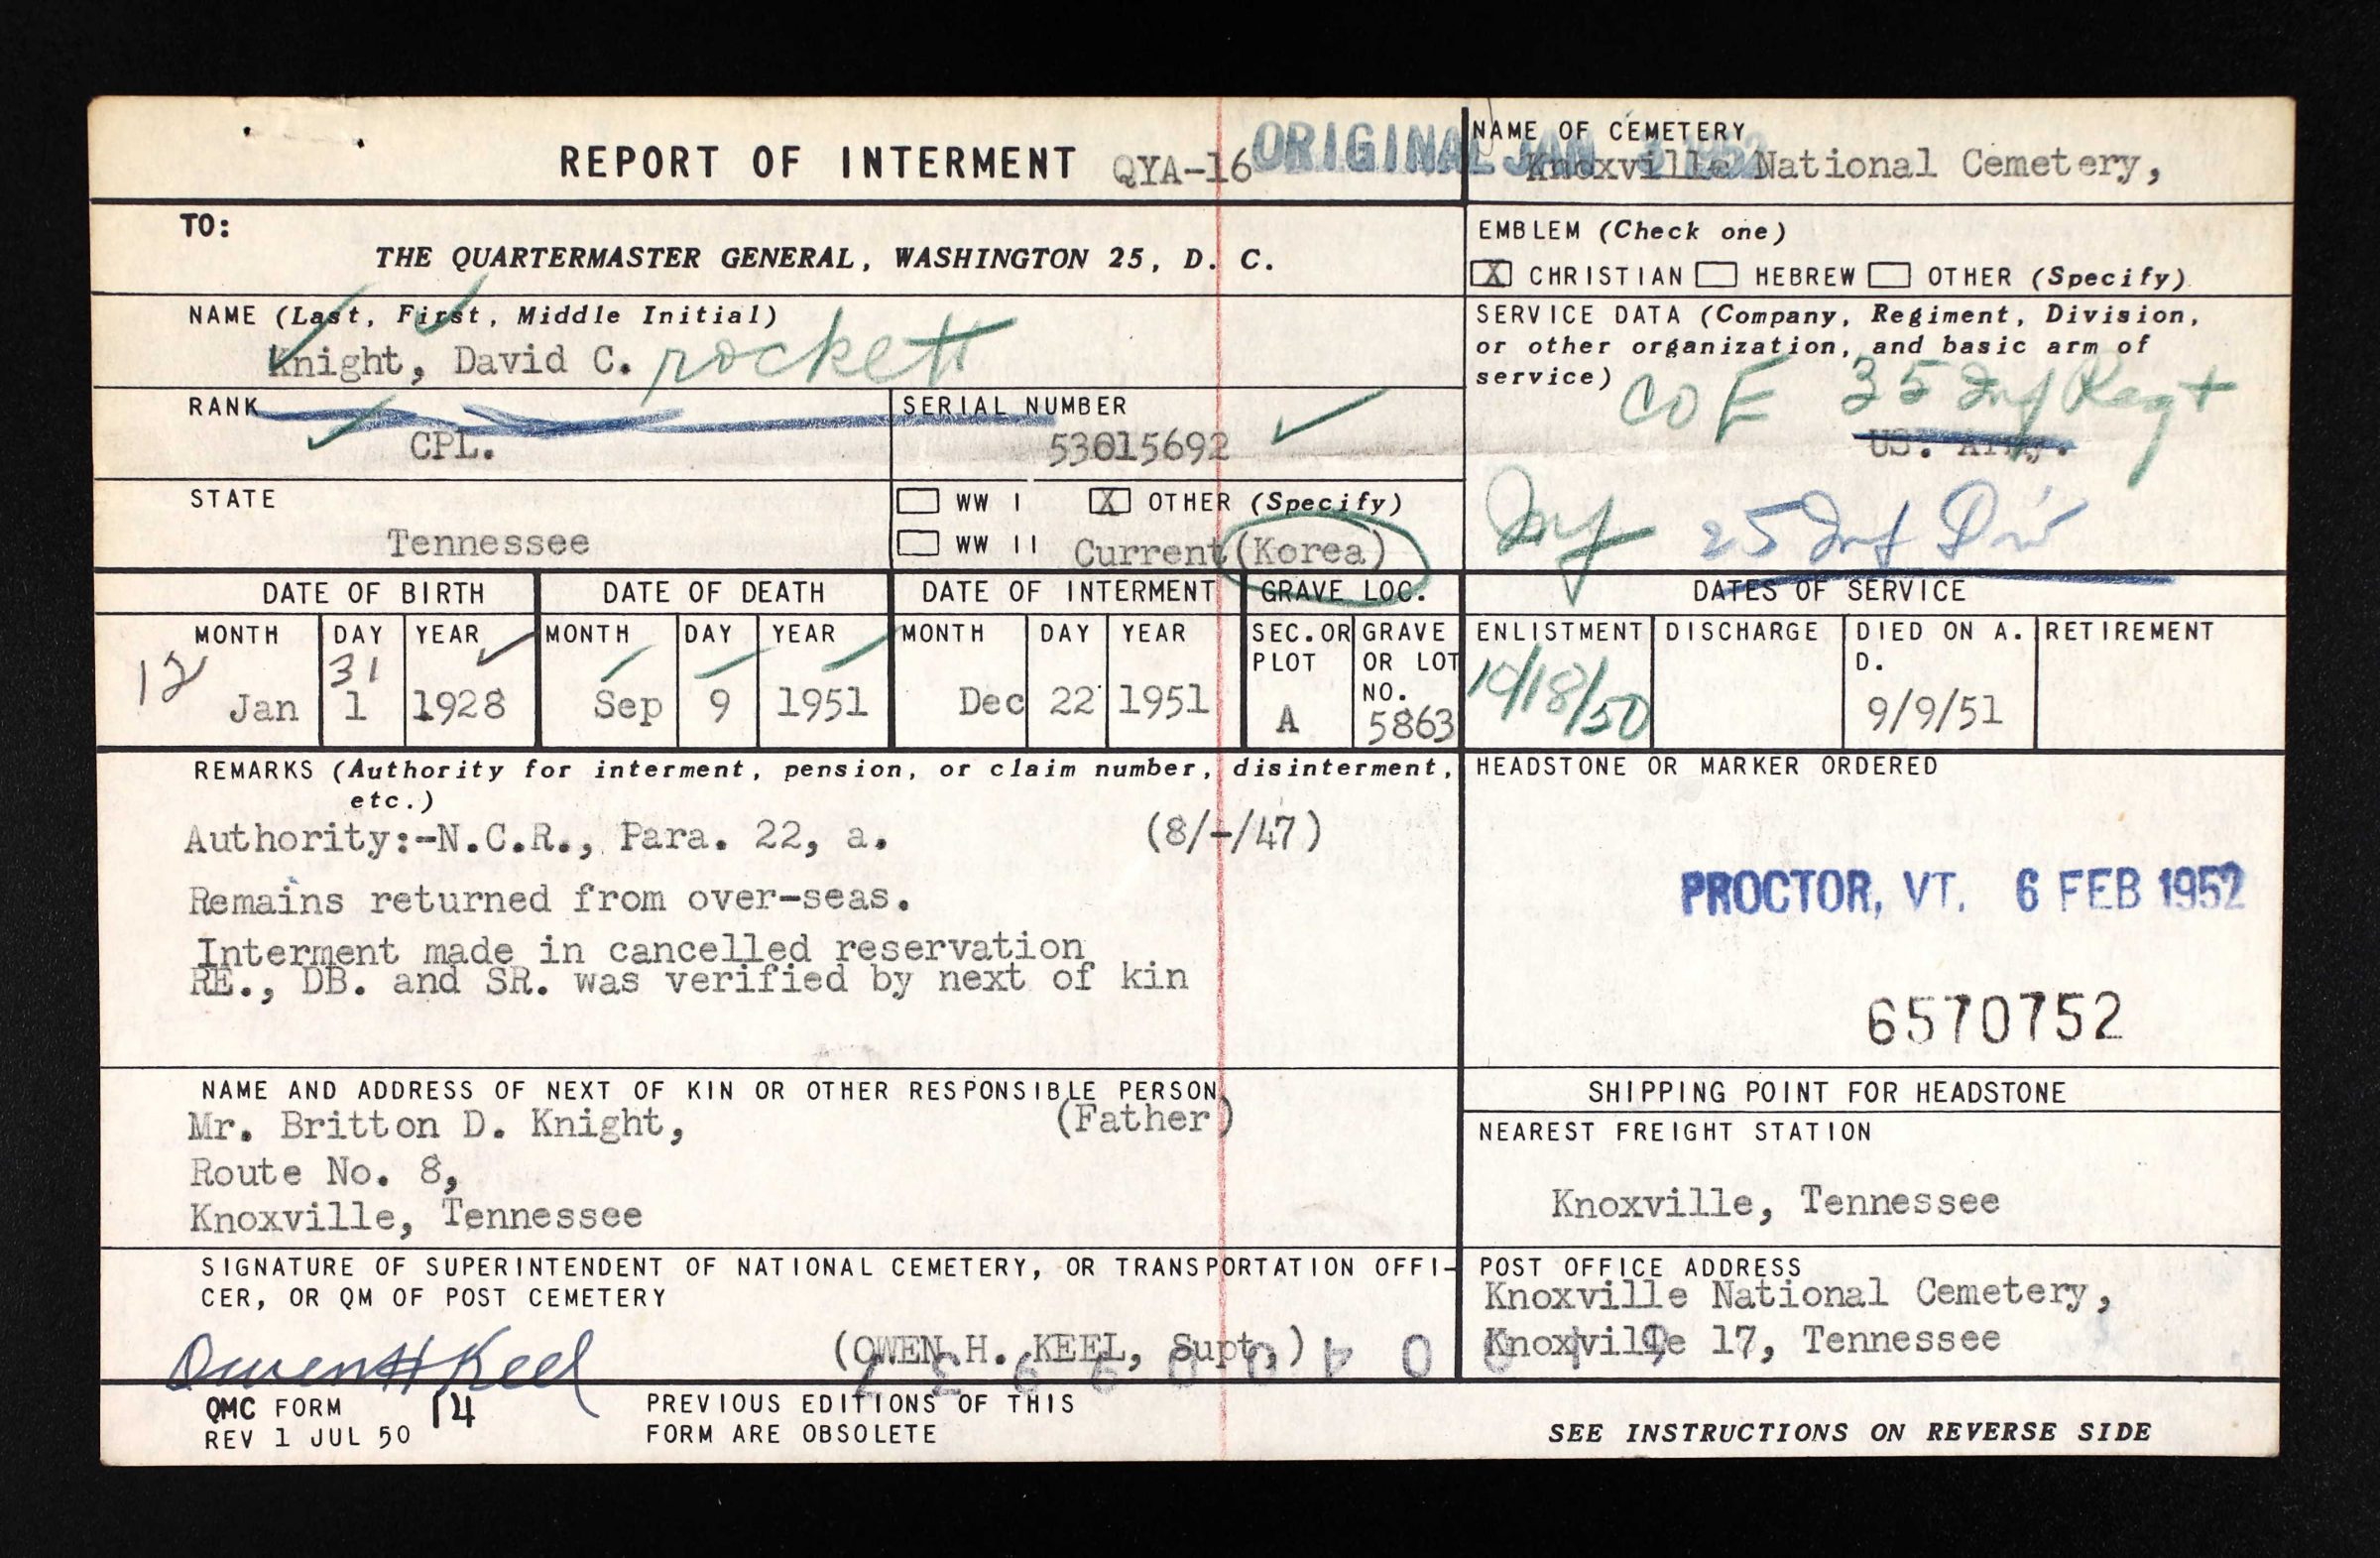 REPORT OF INTERMENT QYA-16 ORIGINAL JAN
NAME OF CEMETERY
Knoxville National Cemetery,
TO:
THE QUARTERMASTER GENERAL, WASHINGTON 25, D. C.
EMBLEM (Check one)
X CHRISTIAN HEBREW OTHER (Specify)
NAME (Last, First, Middle Initial)
Knight, David C. rockett
SERVICE DATA (Company, Regiment, Division,
or other organization, and basic arm of
service)
CO E 35 Inf Regt
US. Army.
Inf 25 Inf Div
RANK
CPL.
SERIAL NUMBER
53015692
STATE
Tennessee
WW I X OTHER (Specify)
WW II Current (Korea)
DATE OF BIRTH DATE OF DEATH DATE OF INTERMENT GRAVE LOC. DATES OF SERVICE
MONTH DAY YEAR MONTH DAY YEAR MONTH DAY YEAR SEC.OR PLOT GRAVE OR LOT NO. ENLISTMENT DISCHARGE DIED ON A. D. RETIREMENT
12 31
Jan 1 1928 Sep 9 1951 Dec 22 1951 A 5863 10/18/50 9/9/51
REMARKS (Authority for interment, pension, or claim number, disinterment,
etc.)
Authority:-N.C.R., Para. 22, a. (8/-/47)
Remains returned from over-seas.
Interment made in cancelled reservation
RE., DB. and SR. was verified by next of kin
HEADSTONE OR MARKER ORDERED
PROCTOR, VT. 6 FEB 1952
6570752
NAME AND ADDRESS OF NEXT OF KIN OR OTHER RESPONSIBLE PERSON
Mr. Britton D. Knight, (Father)
Route No. 8,
Knoxville, Tennessee
SHIPPING POINT FOR HEADSTONE
NEAREST FREIGHT STATION
Knoxville, Tennessee
SIGNATURE OF SUPERINTENDENT OF NATIONAL CEMETERY, OR TRANSPORTATION OFFI-
CER, OR QM OF POST CEMETERY
Owen H Keel (OWEN H. KEEL, Supt.,)
POST OFFICE ADDRESS
Knoxville National Cemetery,
Knoxville 17, Tennessee
QMC FORM 14
REV 1 JUL 50
PREVIOUS EDITIONS OF THIS
FORM ARE OBSOLETE
SEE INSTRUCTIONS ON REVERSE SIDE